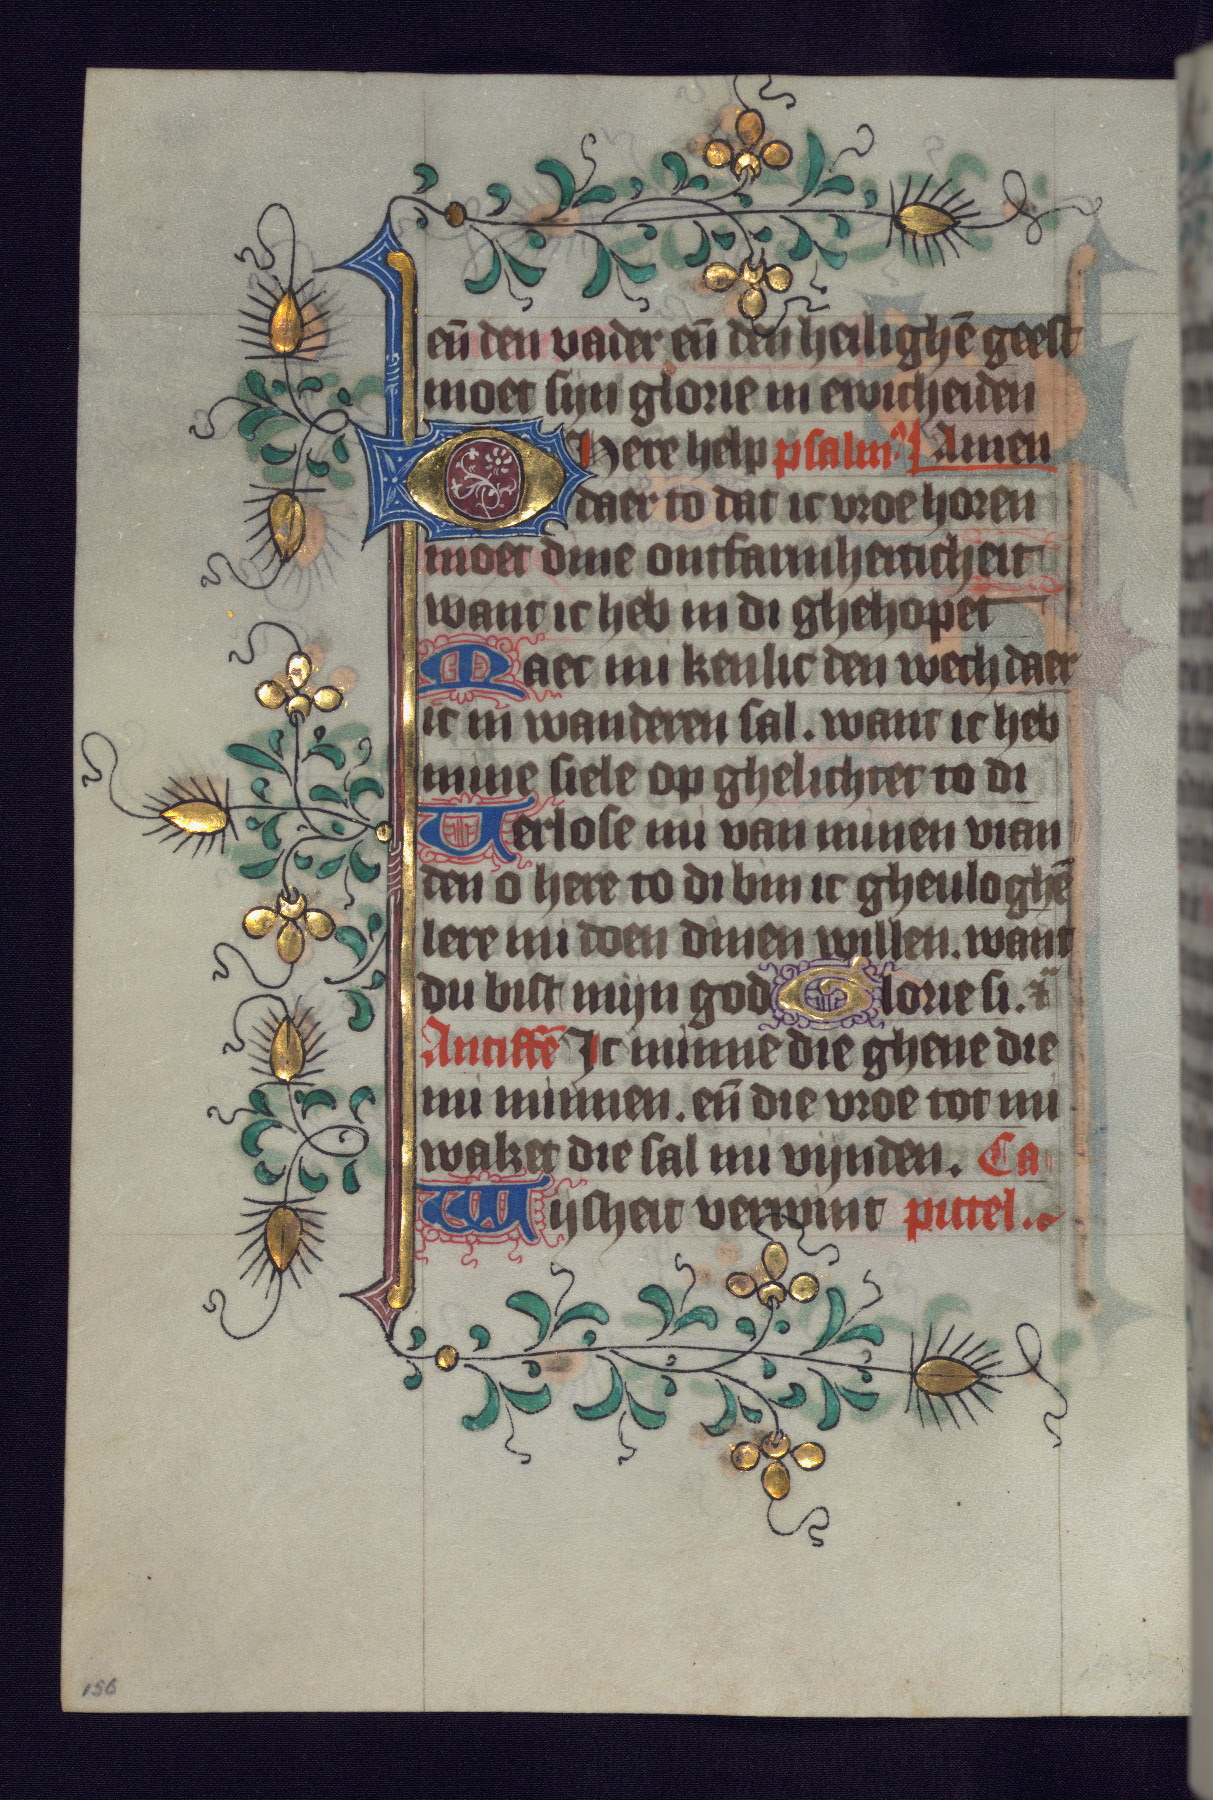 eñ den vader eñ den heilighē geest
moet sijn glorie in ewicheiden
O Here help psalm⁹ Amen
daer to dat ic vroe horen
moet dine ontfarmherticheit
want ic heb in di ghehopet
Maec mi kenlic den wech daer
ic in wanderen sal. want ic heb
mine siele op ghelichtet to di
Verlose mi van minen vian
den o here to di bin ic ghevloghē
lere mi doen dinen willen. want
du bist mijn god Glorie si.
Antiffē Ic minne die ghene die
mi minnen. eñ die vroe tot mi
waket die sal mi vijnden. Ca
Wijsheit verwint pittel.
156